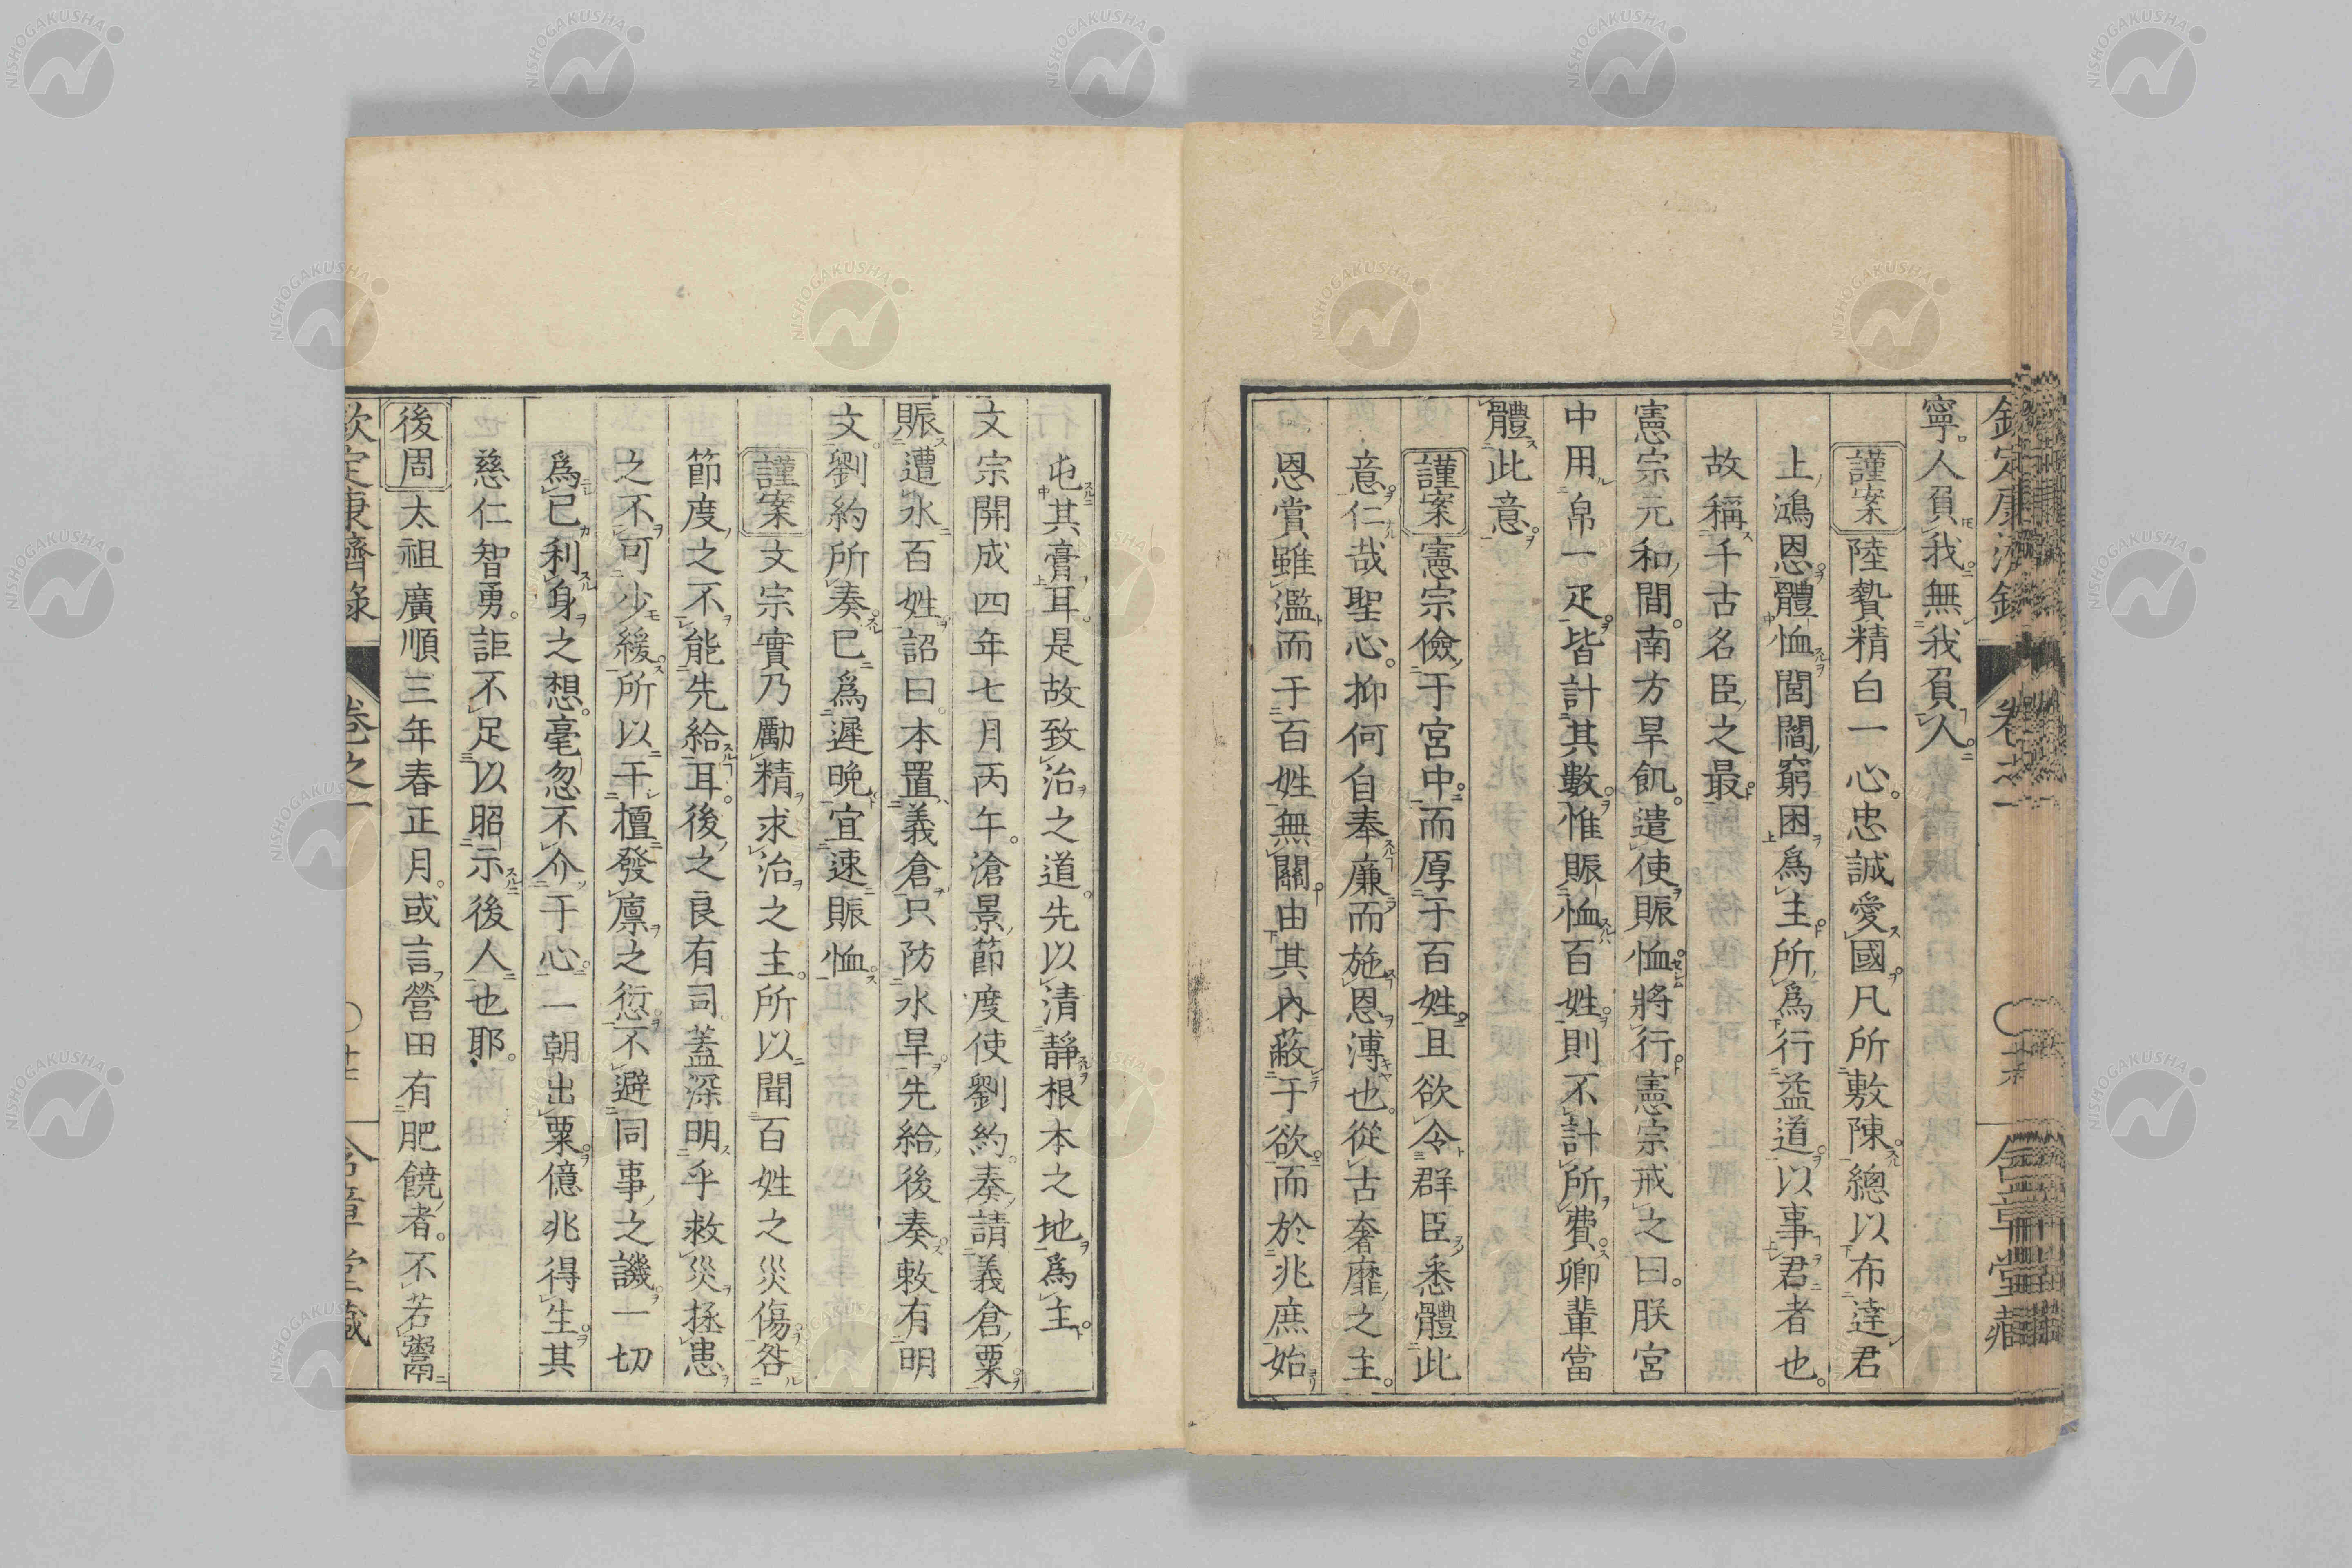 寧。人負我。無我負人。
謹案陸贄精白一心。忠誠愛國。凡所敷陳。總以布達君
上鴻恩。體恤閭閻窮困。爲主所爲。行益道。以事君者也。
故稱千古名臣之最。
憲宗元和間。南方旱飢。遣使賑恤。將行。憲宗戒之曰。朕宮
中用帛一疋。皆計其數。惟賑恤百姓。則不計所費。卿輩當
體此意。
謹案憲宗儉于宮中。而厚于百姓。且欲令群臣悉體此
意。仁哉聖心。抑何自奉廉而施恩溥也。從古奢靡之主。
恩賞雖濫而于百姓無關。由其內蔽于欲。而於兆庶始
屯其膏耳。是故致治之道。先以清靜根本之地爲主。
文宗開成四年七月丙午。滄景節度使劉約。奏請義倉粟。
賑遭水百姓。詔曰。本置義倉。只防水旱。先給後奏。敕有明
文。劉約所奏。已爲遲晚。宜速賑恤。
謹案文宗實乃勵精求治之主。所以聞百姓之災傷。咎
節度之不能先給耳。後之良有司。蓋深明乎救災拯患
之不可少緩。所以干擅發廪之愆。不避同事之譏。一切
爲己利身之想。毫忽不介于心。一朝出粟。億兆得生。其
慈仁智勇。詎不足以昭示後人也耶。
後周太祖廣順三年春正月。或言營田有肥饒者。不若鬻
欽定康濟錄 卷之一 合章堂藏